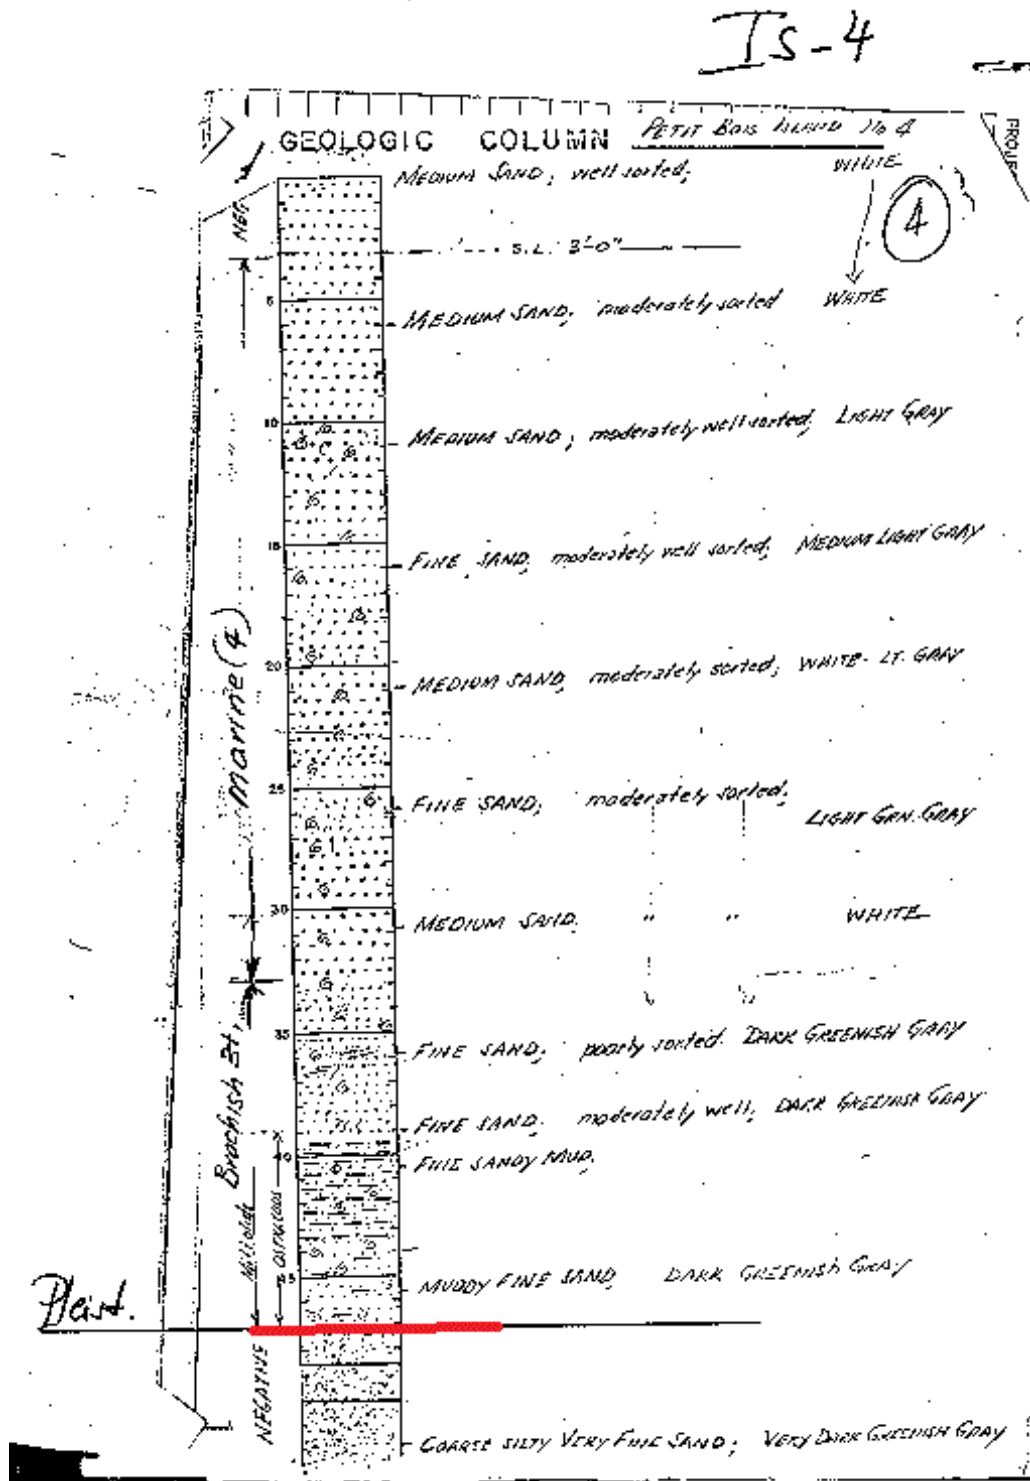 IS-4
GEOLOGIC COLUMN PETIT BOIS ISLAND No 4
PROJE
MEDIUM SAND; well sorted; WHITE
4
NEG
S.L. 3'-0"
5
MEDIUM SAND; moderately sorted WHITE
10
MEDIUM SAND; moderately well sorted; LIGHT GRAY
15
FINE SAND; moderately well sorted; MEDIUM LIGHT GRAY
Marine (4)
20
MEDIUM SAND; moderately sorted; WHITE - LT. GRAY
25
FINE SAND; moderately sorted;
LIGHT GRN. GRAY
30
MEDIUM SAND. " " WHITE
35
Brackish
FINE SAND; poorly sorted. DARK GREENISH GRAY
FINE SAND; moderately well; DARK GREENISH GRAY
40
FINE SANDY MUD;
OSTRACODS
45
MUDDY FINE SAND, DARK GREENISH GRAY
Pleist.
NEGATIVE
COARSE SILTY VERY FINE SAND; VERY DARK GREENISH GRAY